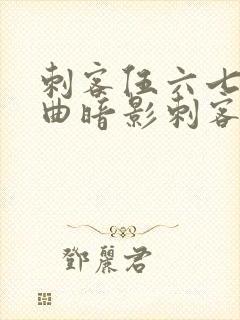 刺客伍六七
曲暗影刺客
鄧麗君